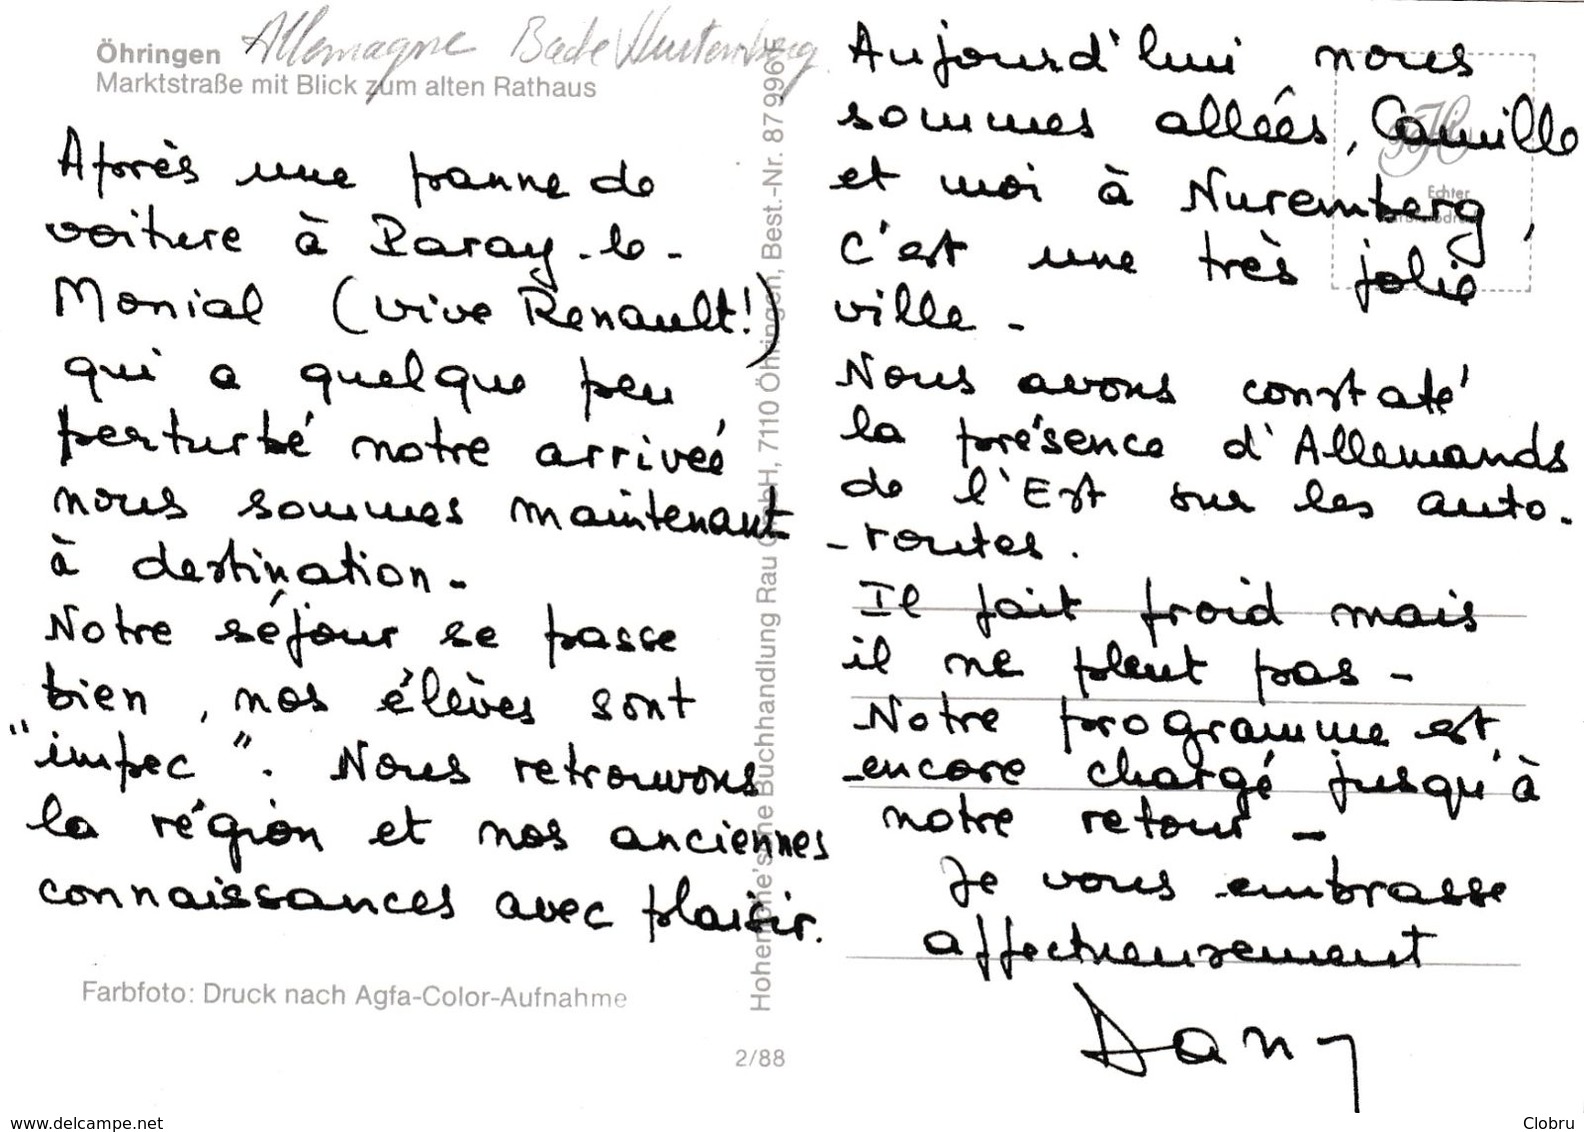 Öhringen Allemagne Bade Wurtemberg
Marktstraße mit Blick zum alten Rathaus
Après une panne de
voiture à Paray-le-
Monial (vive Renault!)
qui a quelque peu
perturbé notre arrivée,
nous sommes maintenant
à destination -
Notre séjour se passe
bien, nos élèves sont
"impec". Nous retrouvons
la région et nos anciennes
connaissances avec plaisir.
Farbfoto: Druck nach Agfa-Color-Aufnahme
2/88
Hohenlohe'sche Buchhandlung Rau GmbH, 7110 Öhringen, Best.-Nr. 87 996 F
Aujourd'hui nous
sommes allées, Camille
et moi à Nuremberg,
c'est une très jolie
ville -
Nous avons constaté
la présence d'Allemands
de l'Est sur les auto-
-routes.
Il fait froid mais
il ne pleut pas -
Notre programme est
encore chargé jusqu'à
notre retour -
Je vous embrasse
affectueusement
Dany
Echter
www.delcampe.net
Clobru